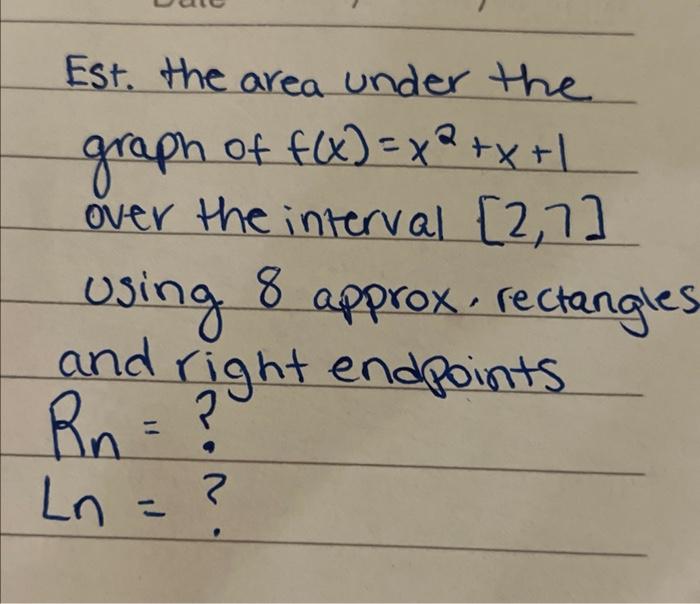 Date
Est. the area under the
graph of f(x) = x² + x + 1
over the interval [2,7]
using 8 approx. rectangles
and right endpoints
Rn = ?
Ln = ?